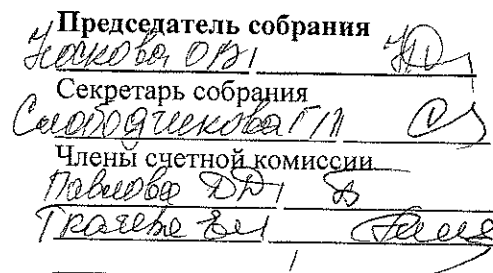 Председатель собрания
Носкова О.В.
Секретарь собрания
Слободчикова Г.П.
Члены счетной комиссии
Павлова
Ткачева